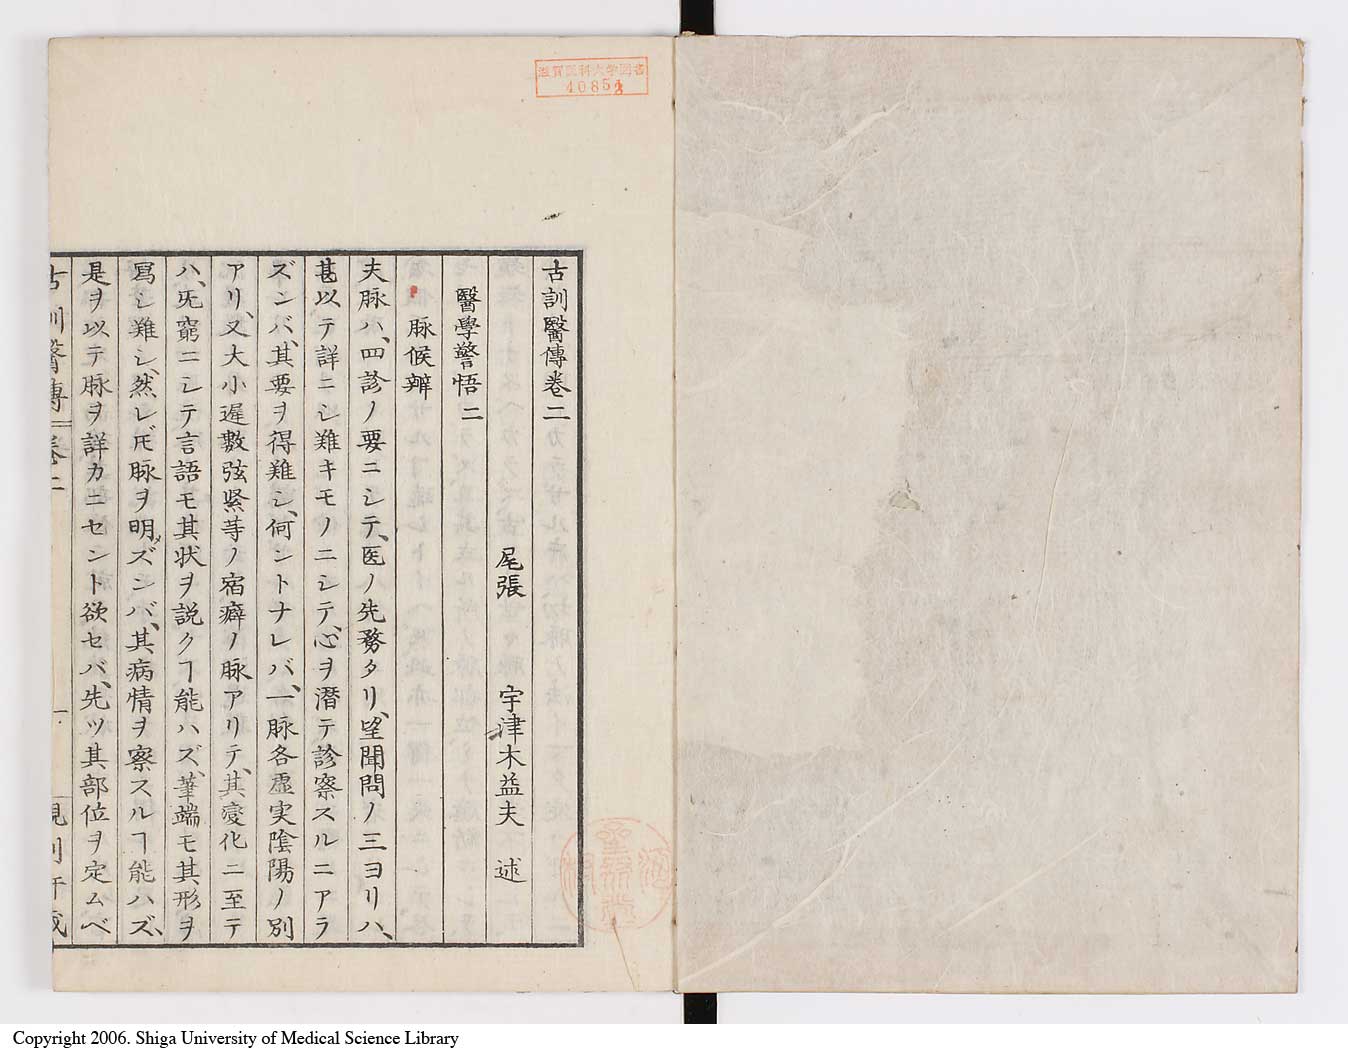 滋賀医科大学図書
古訓醫傳卷二
醫學警悟二
尾張 宇津木益夫 述
脉候辨
夫脉ハ、四診ノ要ニシテ、医ノ先務タリ、望聞問ノ三ヨリハ、
甚以テ詳ニシ難キモノニシテ、心ヲ潜テ診察スルニアラ
ズンバ、其要ヲ得難シ、何ントナレバ、一脉各虚実陰陽ノ別
アリ、又大小遅數弦緊等ノ宿癖ノ脉アリテ、其変化ニ至テ
ハ、旡窮ニシテ言語モ其状ヲ説クヿ能ハズ、筆端モ其形ヲ
寫シ難シ、然レ𪜈脉ヲ明ズンバ、其病情ヲ察スルヿ能ハズ、
是ヲ以テ脉ヲ詳カニセント欲セバ、先ツ其部位ヲ定ムベ
古訓醫傳 卷二 一
Copyright 2006. Shiga University of Medical Science Library